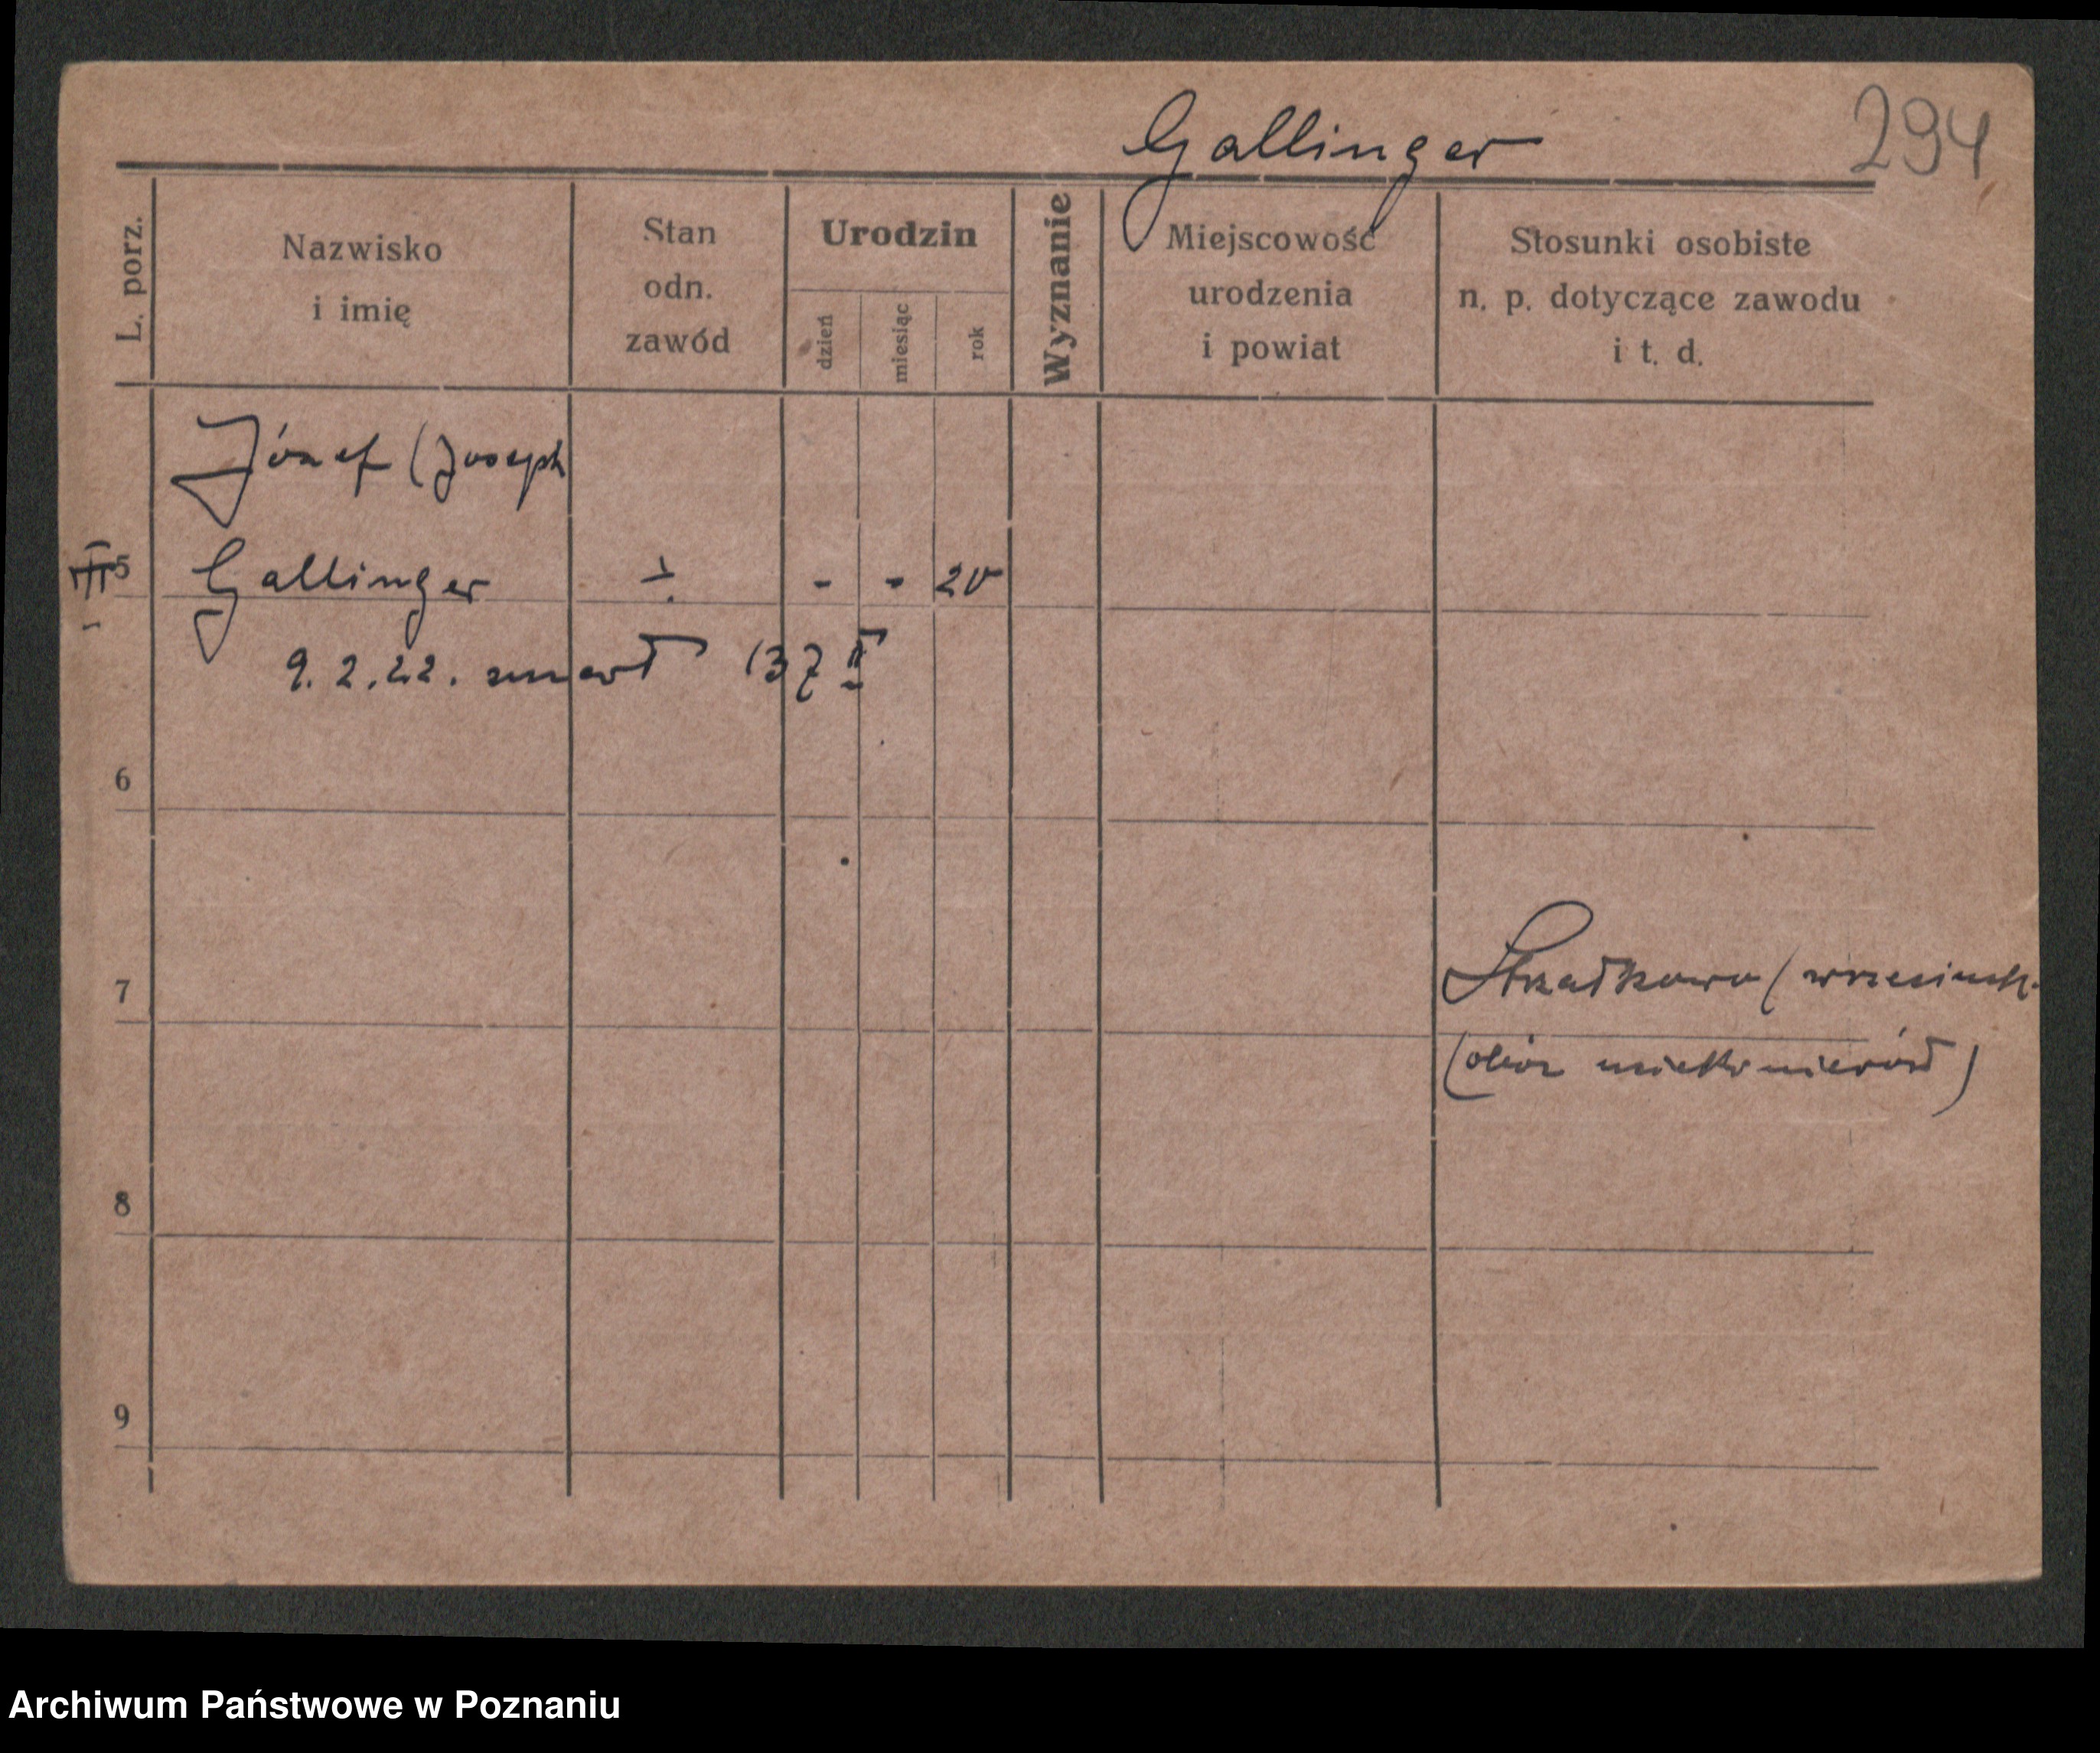 Gallinger
294
L. porz.
Nazwisko
i imię
Stan
odn.
zawód
Urodzin
dzień
miesiąc
rok
Wyznanie
Miejscowość
urodzenia
i powiat
Stosunki osobiste
n. p. dotyczące zawodu
i t. d.
Józef (Joseph
III 5 Gallinger - - 20
9. 2. 22. zmarł 137 II
6
7
Strzałkowo (wrzesińsk.
(obóz uciekinierów)
8
9
Archiwum Państwowe w Poznaniu